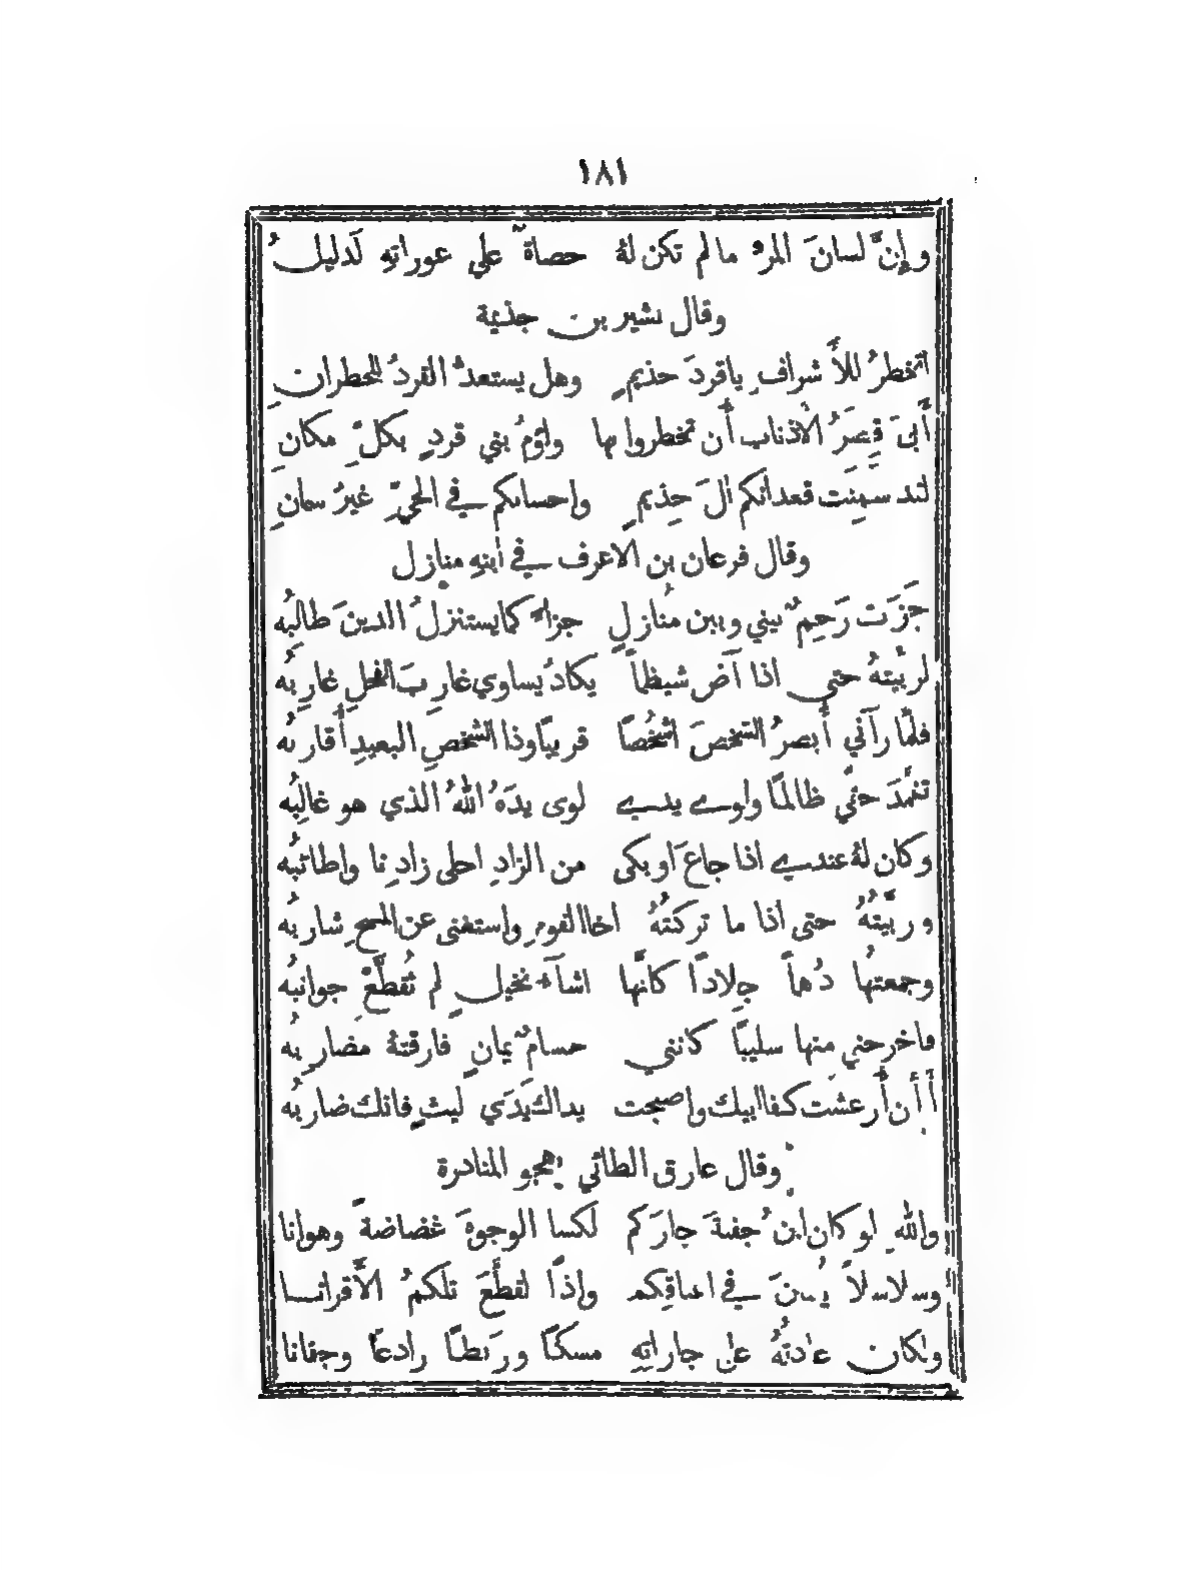 ١٨١
وإنَّ لسانَ المرءِ مالم تكن لهُ حصاةٌ علي عوراتهِ لَدليلُ
وقال بشير بن جذيمة
اتخطرُ للأَشرافِ ياقردَ حذيمٍ وهل يستعدُّ القردُ للخطرانِ
أَبى قِصَرُ الأذناب أَن تخطروا بها ولؤمُ بني قردٍ بكلِّ مكانِ
لقد سمِنَت قعدانكم آلَ حِذيمٍ واحسابكم في الحيِّ غيرُ سمانِ
وقال فرعان بن الاعرف في ابنهِ منازل
جَزَت رَحِمٌ بيني وبين مُنازلٍ جزاءً كمايستنزلُ الدينَ طالبُه
لربَّيتهُ حتى اذا آض شيظماً يكادُ يساوي غاربَ الفحلِ غارِبُه
فلمَّا رآني أَبصرُ الشخصَ اشخُصًا قريبًا وذا الشخصِ البعيدِ أَقاربُه
تغمَّدَ حقّي ظالمًا ولوى يدي لوى يدَهُ اللهُ الذي هو غالِبُه
وكان لهُ عندي اذا جاعَ او بكى من الزادِ احلى زادِنا واطائبُه
وربَّيتهُ حتى اذا ما تركتُهُ اخا القومِ واستغنى عن المسحِ شاربُه
وجمعتُها دُهماً جِلادًا كأنَّها اشآءُ نخيلٍ لم تُقطَّعْ جوانبُه
فاخرجني منها سليبًا كانني حسامٌ يمانٍ فارقتهُ مضاربُه
أَأَن أُرعشت كفا ابيك واصبحت يداك يَدَي ليثٍ فانك ضاربُه
وقال عارق الطائي يهجو المناذرة
واللهِ لو كان ابنُ جفنةَ جارَكم لكسا الوجوهَ غضاضةً وهوانا
وسلاسلاً يُبنَ في اعناقِكم واذًا لقطَّعَ تلكمُ الأَقرانا
ولكان عادتُهُ على جاراتِهِ مسكًا وريطًا رادعًا وجفانا